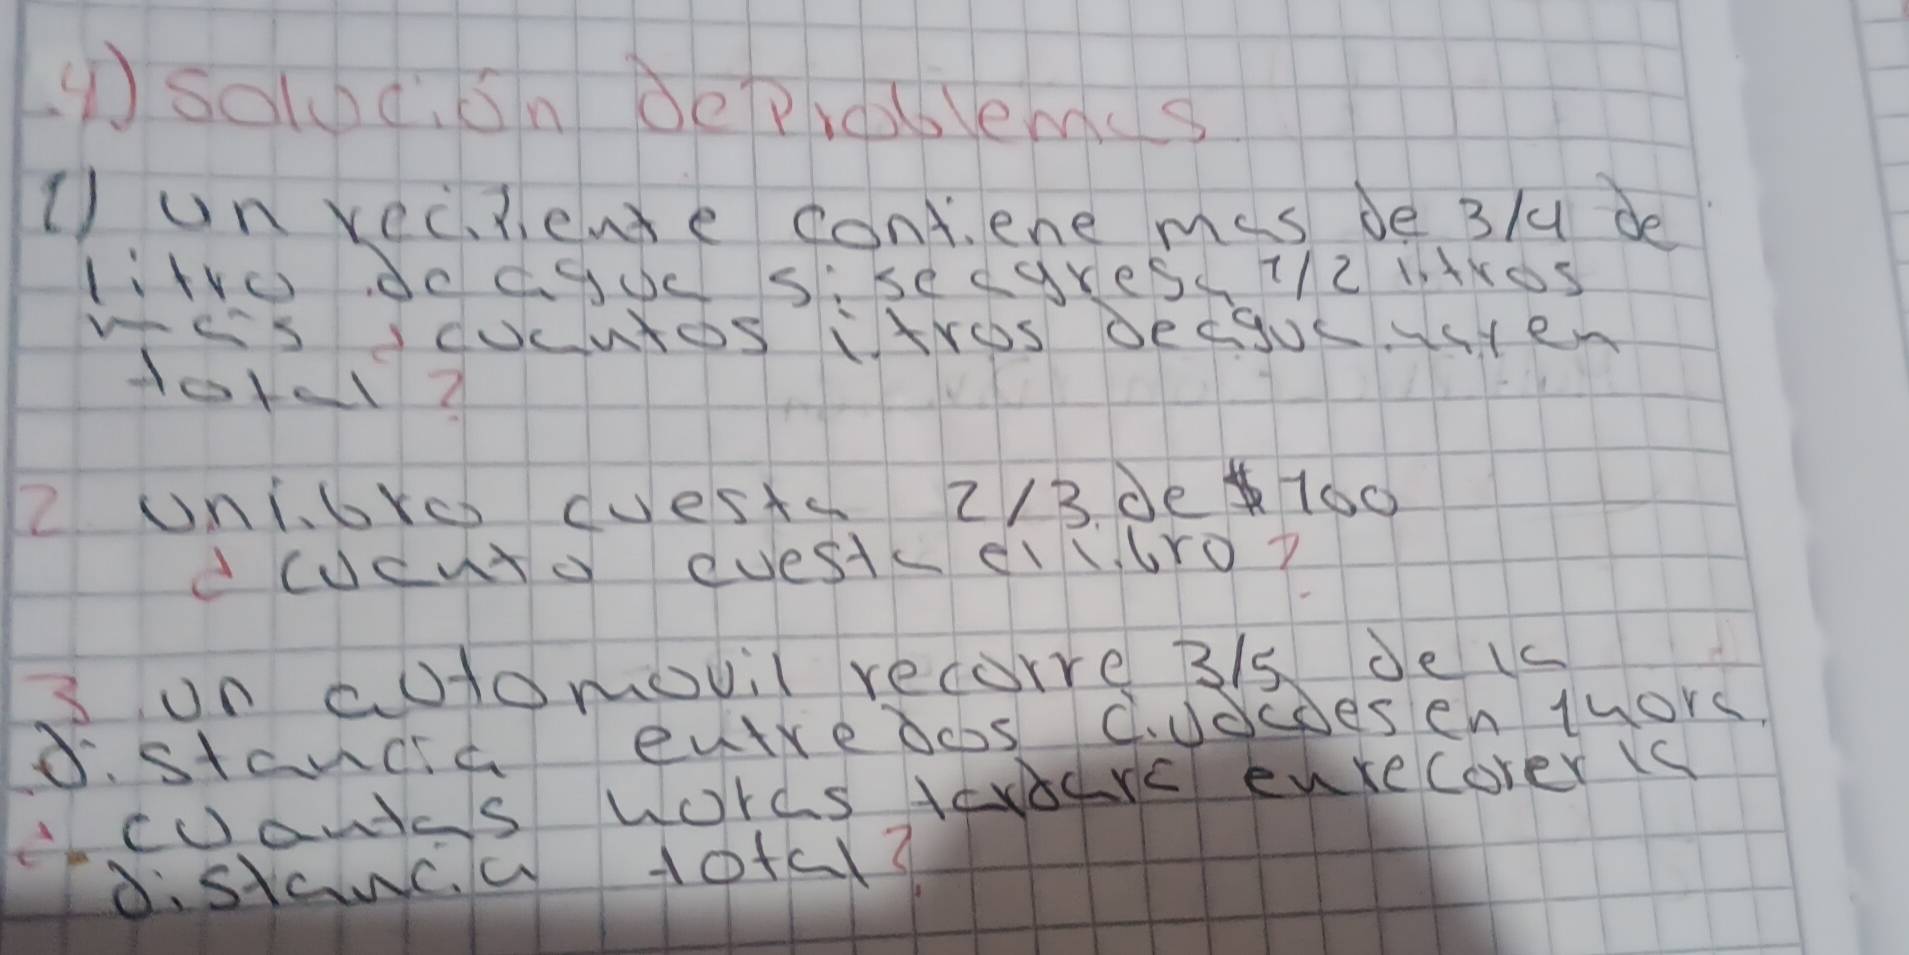 4) Solución de Problemas
1) un recipiente contiene mas de 3/4 de
litro de agua si se agresa 1/2 litros
mas ¿cuantos litros de agua hay en
total?
2 un libro cuesta 2/3 de $100
¿cuanto cuesta el libro?
3 un automovil recorre 3/5 de la
distancia entre dos ciudades en 1 hora
¿cuantas horas tardara en recorer la
distancia total?